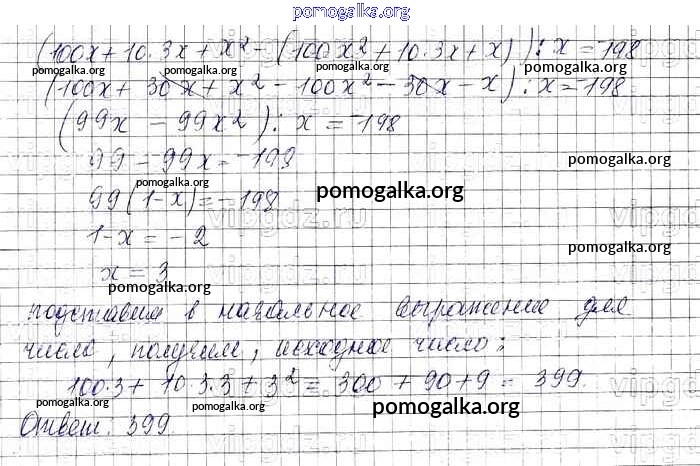 pomogalka.org
(100x + 10·3x + x² - (100x² + 10·3x + x)) : x = -198
pomogalka.org pomogalka.org pomogalka.org
(100x + 30x + x² - 100x² - 30x - x) : x = -198
(99x - 99x²) : x = -198
99 - 99x = -198
pomogalka.org
pomogalka.org
99(1-x) = -198
pomogalka.org
vipgdz.ru
1-x = -2
pomogalka.org
x = 3
подставим в начальное выражение для
pomogalka.org pomogalka.org pomogalka.org
числа, получим, исходное число:
100·3 + 10·3·3 + 3² = 300 + 90 + 9 = 399.
pomogalka.org pomogalka.org pomogalka.org
Ответ: 399